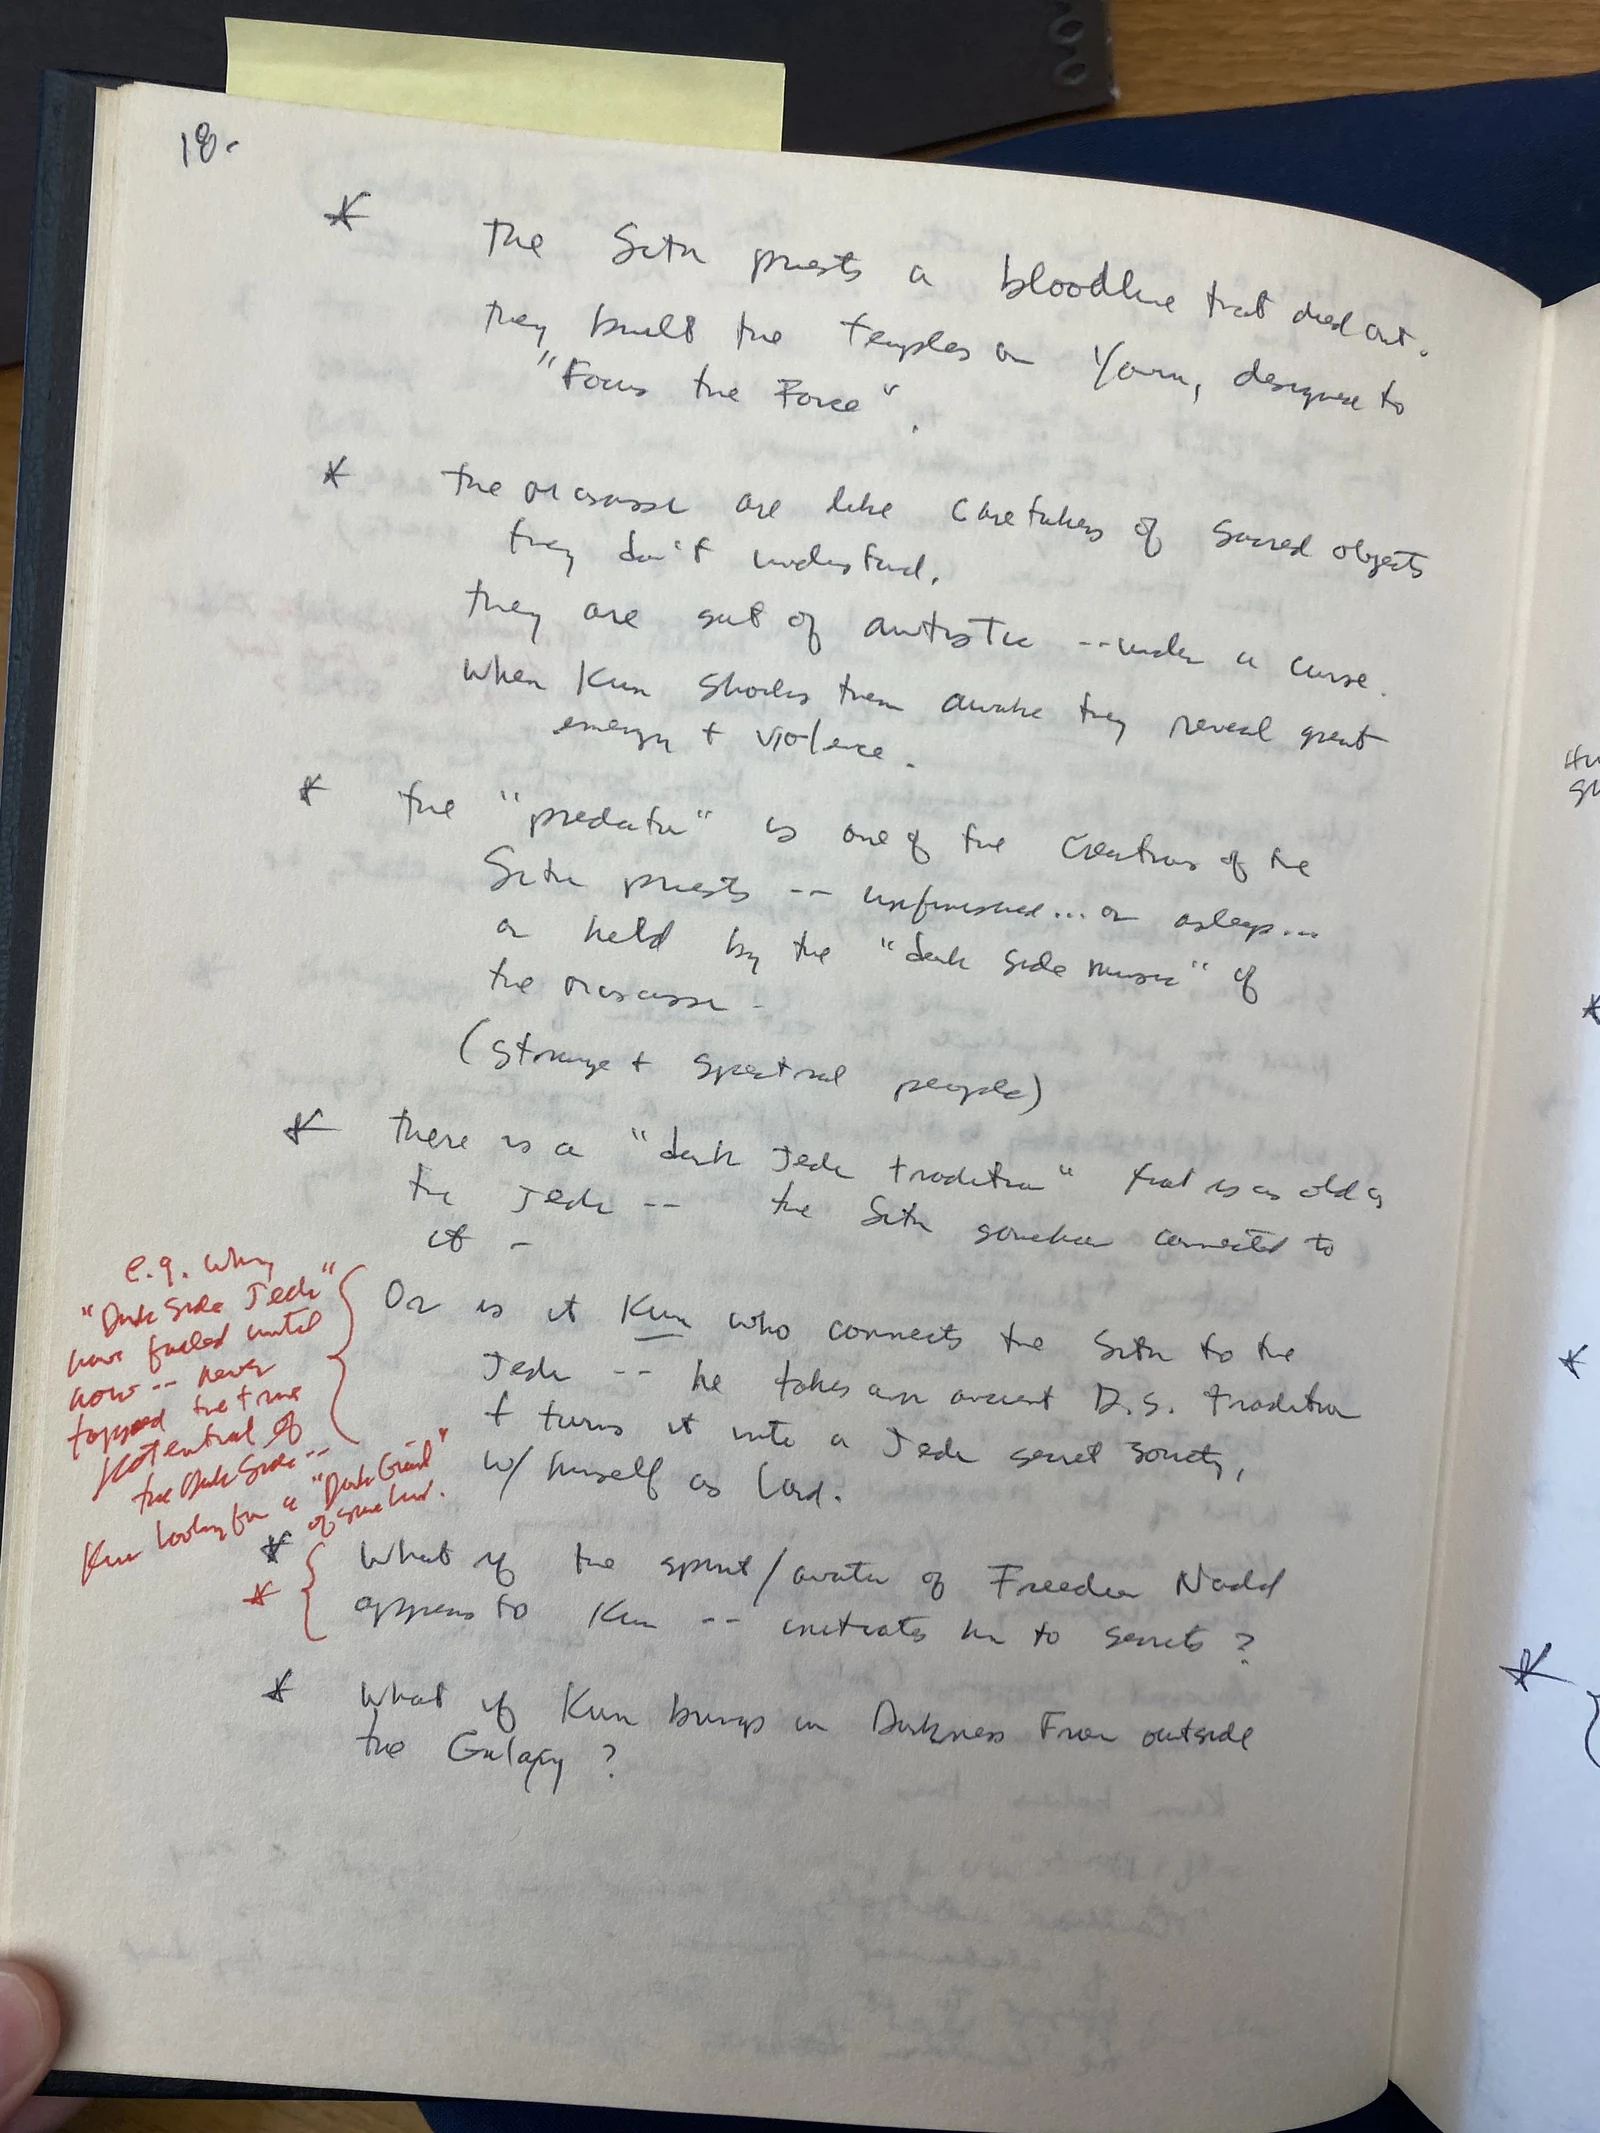 18.
* The Sith priests a bloodline that died out.
They built the Temples on Yavin, designed to
"Focus the Force".
* the Massassi are like caretakers of sacred objects
they don't understand.
They are sort of autistic -- under a curse.
When Kun shocks them awake they reveal great
energy + violence.
* the "predator" is one of the creations of the
Sith priests -- unfinished... or asleep...
or held by the "dark side music" of
the Massassi -
(strange + spectral people)
* there is a "dark Jedi tradition" that is as old as
the Jedi -- the Sith somehow connected to
it -
e.g. why
"Dark Side Jedi"
have failed until
now -- never
tapped the true
potential of
the Dark Side --
Kun looking for a "Dark Grail"
of some kind.
Or is it Kun who connects the Sith to the
Jedi -- he takes an ancient D.S. Tradition
+ turns it into a Jedi secret society,
w/ himself as Lord.
* What if the spirit/avatar of Freedon Nadd
* appears to Kun -- initiates him to secrets?
* What if Kun brings in Darkness From outside
the Galaxy?
*
*
*